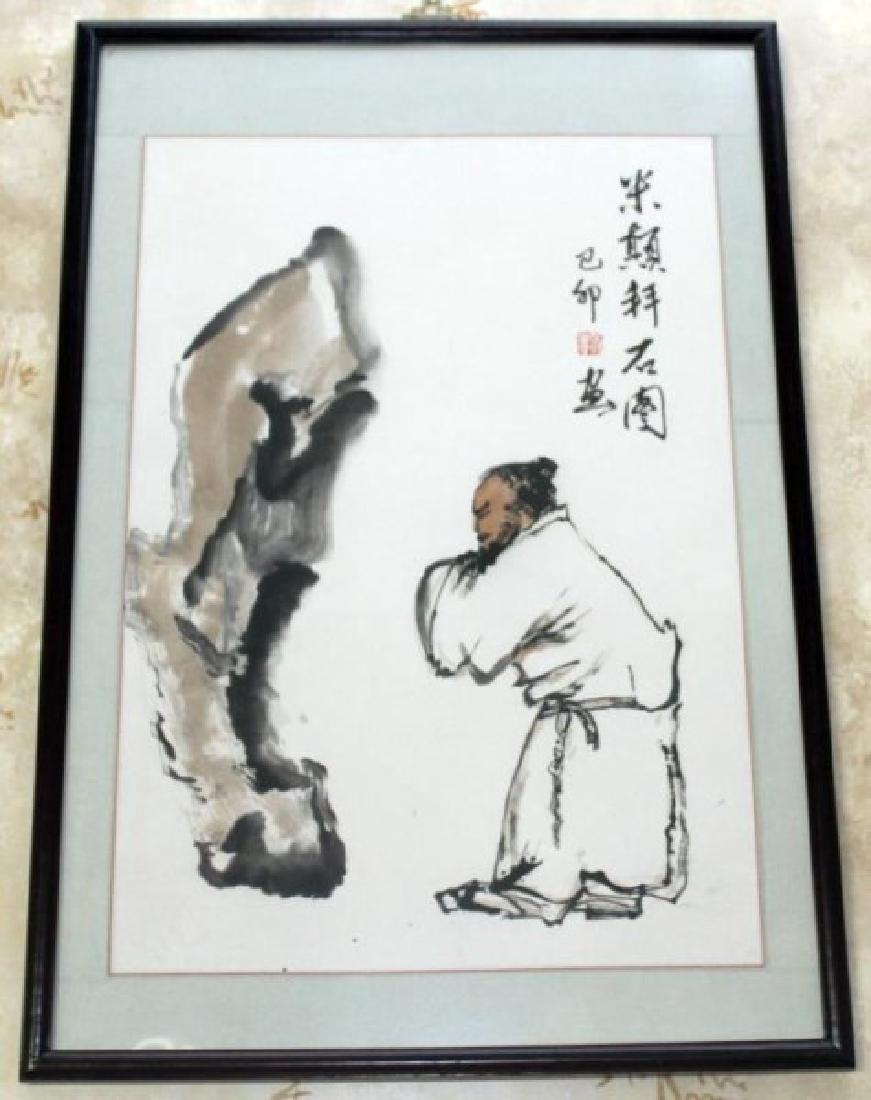 米顛拜石圖
己卯
畫